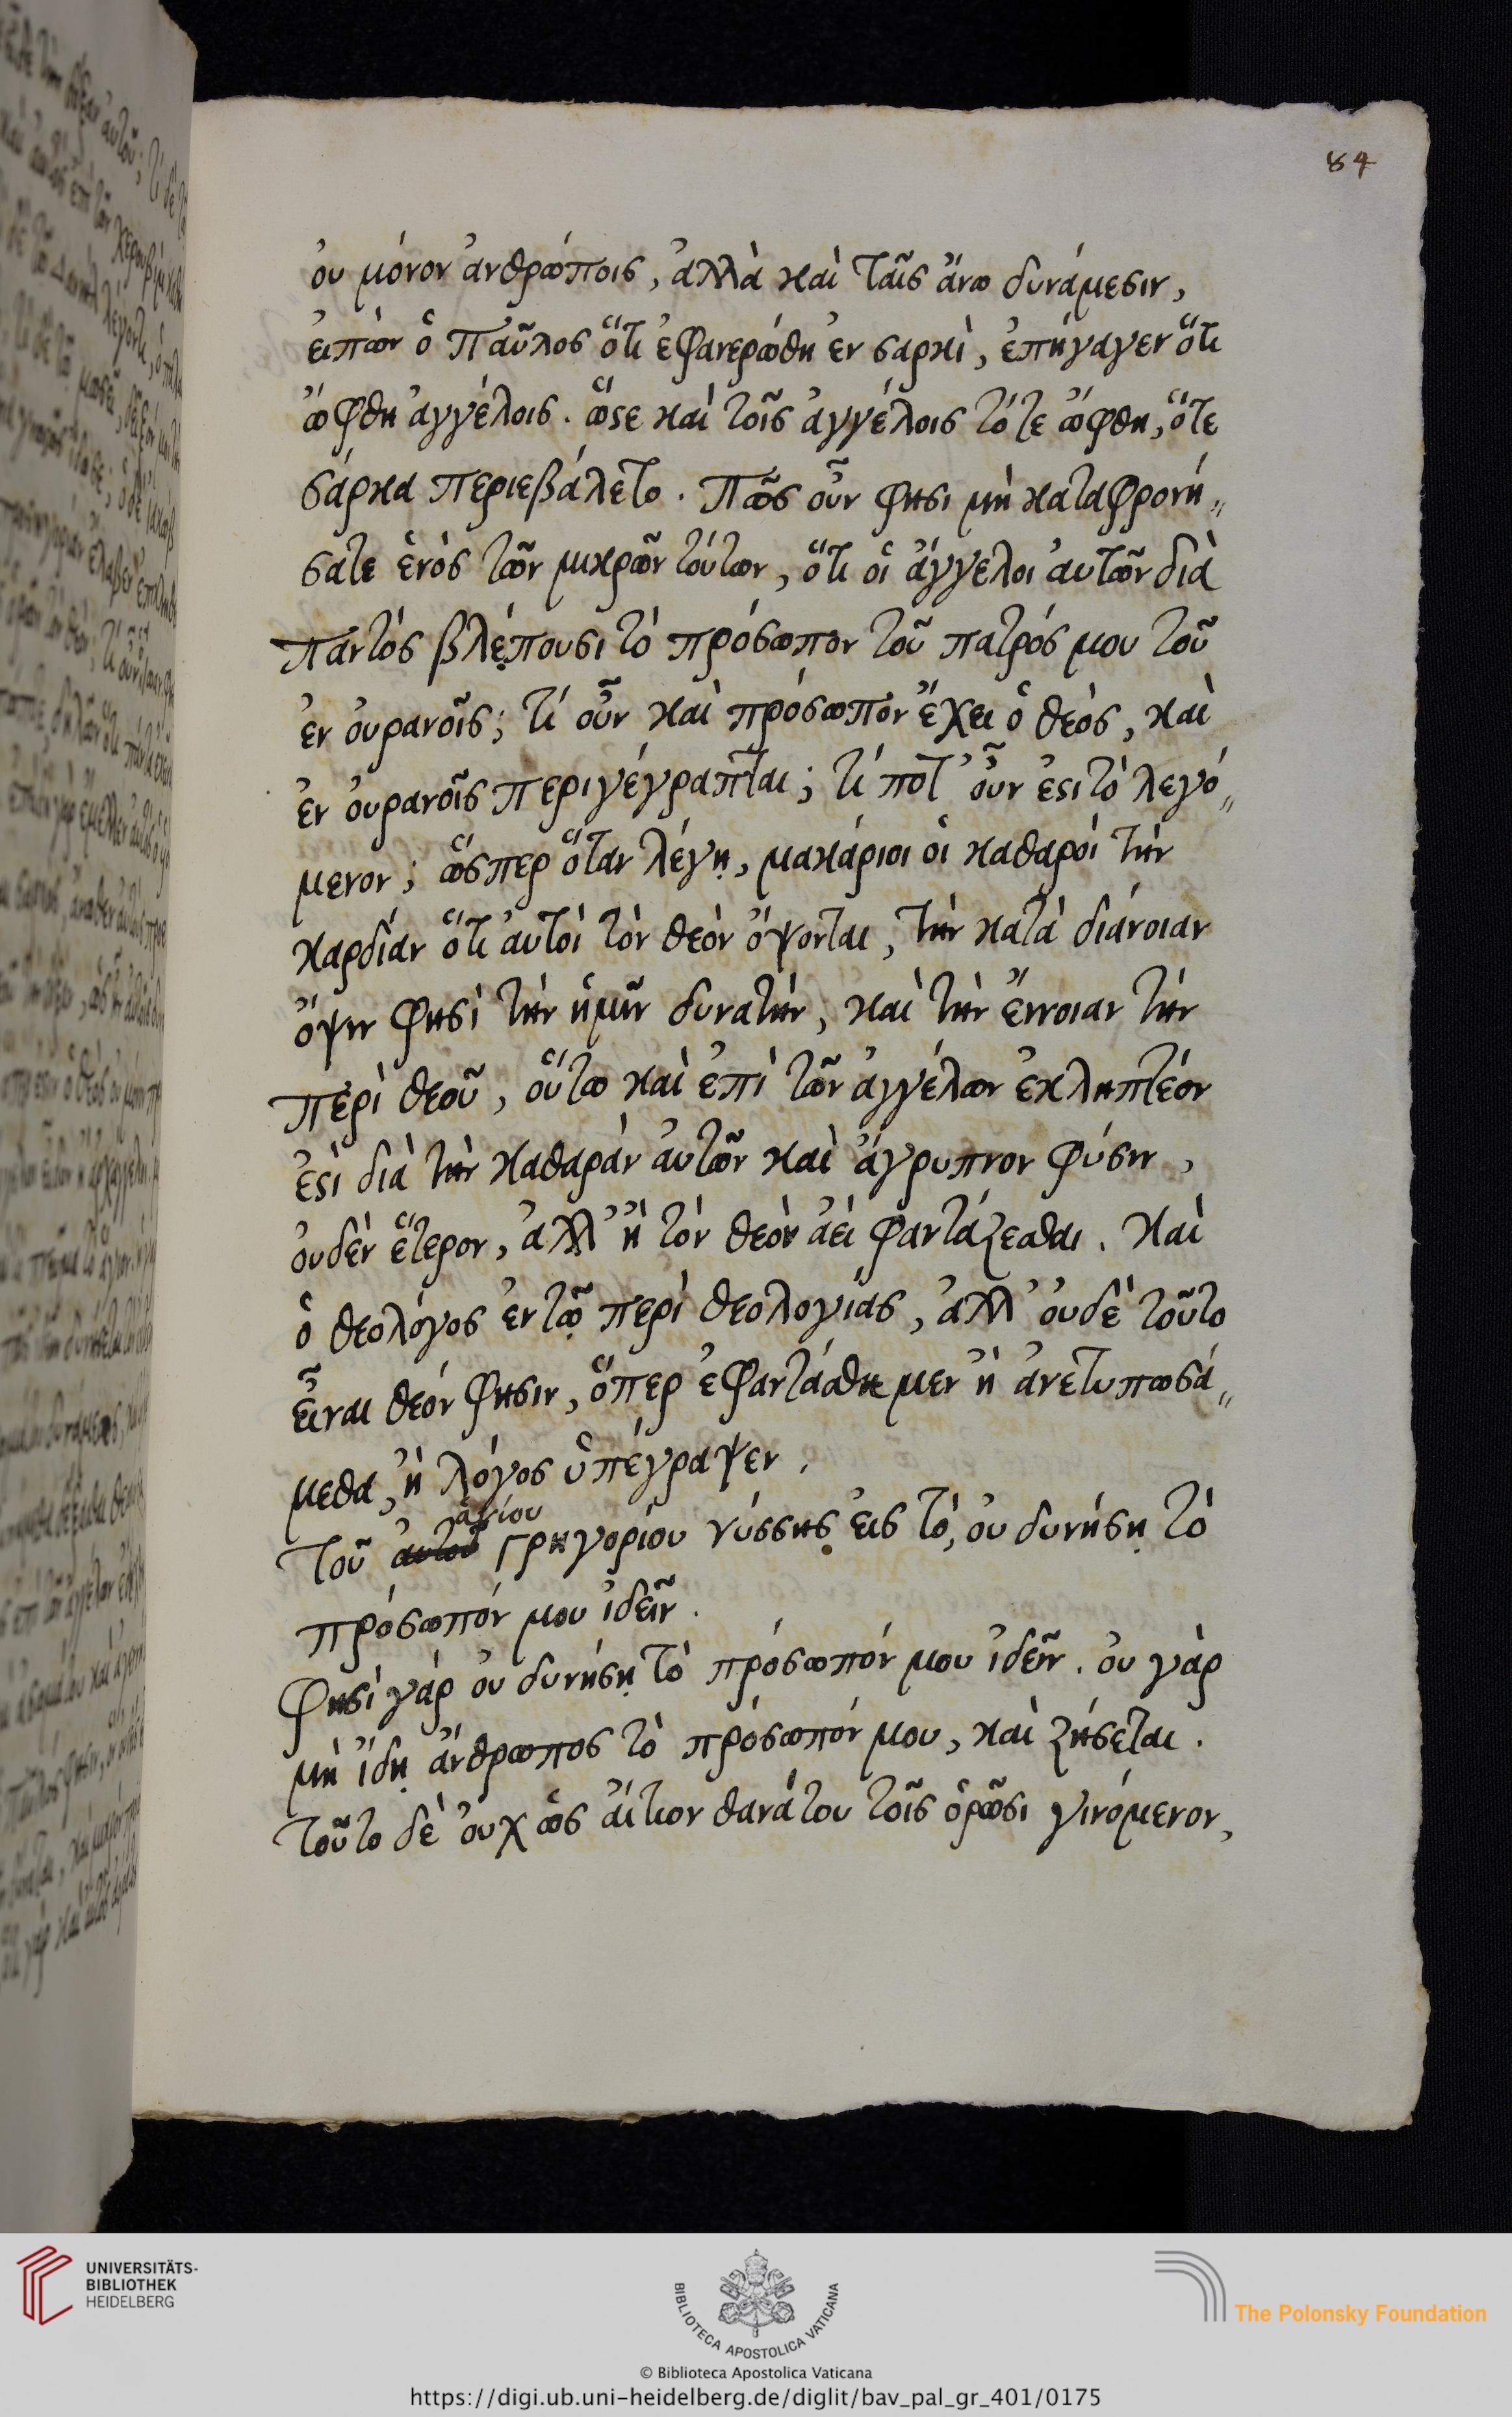 84
οὐ μόνον ἀνθρώποις, ἀλλὰ καὶ ταῖς ἄνω δυνάμεσιν,
εἰπὼν ὁ Παῦλος ὅτι ἐφανερώθη ἐν σαρκὶ, ἐπήγαγεν ὅτι
ὤφθη ἀγγέλοις. ὥστε καὶ τοῖς ἀγγέλοις τότε ὤφθη, ὅτε
σάρκα περιεβάλετο. Πῶς οὖν φησι μὴ καταφρονή〃
σατε ἑνὸς τῶν μικρῶν τούτων, ὅτι οἱ ἄγγελοι αὐτῶν διὰ
παντὸς βλέπουσι τὸ πρόσωπον τοῦ πατρός μου τοῦ
ἐν οὐρανοῖς; τί οὖν καὶ πρόσωπον ἔχει ὁ θεὸς, καὶ
ἐν οὐρανοῖς περιγέγραπται; τί ποτ' οὖν ἐστι τὸ λεγό〃
μενον; ὥσπερ ὅταν λέγῃ, μακάριοι οἱ καθαροὶ τὴν
καρδίαν ὅτι αὐτοὶ τὸν θεὸν ὄψονται, τὴν κατὰ διάνοιαν
ὄψιν φησὶ τὴν ἡμῖν δυνατὴν, καὶ τὴν ἔννοιαν τὴν
περὶ θεοῦ, οὕτω καὶ ἐπὶ τῶν ἀγγέλων ἐκληπτέον
ἐστὶ διὰ τὴν καθαρὰν αὐτῶν καὶ ἄγρυπνον φύσιν,
οὐδὲν ἕτερον, ἀλλ' ἢ τὸν θεὸν ἀεὶ φαντάζεσθαι. Καὶ
ὁ θεολόγος ἐν τῷ περὶ θεολογίας, ἀλλ' οὐδὲ τοῦτο
εἶναι θεόν φησιν, ὅπερ ἐφαντάσθημεν ἢ ἀνετυπωσά〃
μεθα, ἢ λόγος ὑπέγραψεν.
ἁγίου
Τοῦ αὐτοῦ Γρηγορίου νύσσης εἰς τὸ, οὐ δυνήσῃ τὸ
πρόσωπόν μου ἰδεῖν.
Φησὶ γὰρ οὐ δυνήσῃ τὸ πρόσωπόν μου ἰδεῖν. οὐ γὰρ
μὴ ἴδῃ ἄνθρωπος τὸ πρόσωπόν μου, καὶ ζήσεται.
τοῦτο δὲ οὐχ ὡς αἴτιον θανάτου τοῖς ὁρῶσι γινόμενον,
UNIVERSITÄTS-
BIBLIOTHEK
HEIDELBERG
BIBLIOTECA APOSTOLICA VATICANA
The Polonsky Foundation
© Biblioteca Apostolica Vaticana
https://digi.ub.uni-heidelberg.de/diglit/bav_pal_gr_401/0175